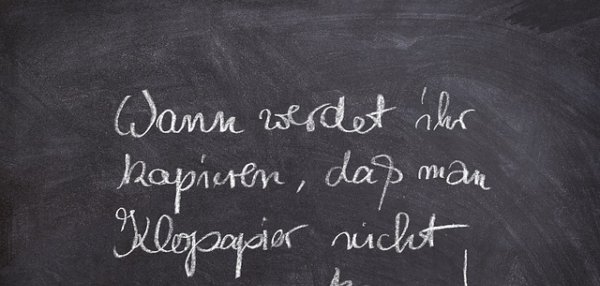 Wann werdet ihr
kapieren, daß man
Klopapier nicht